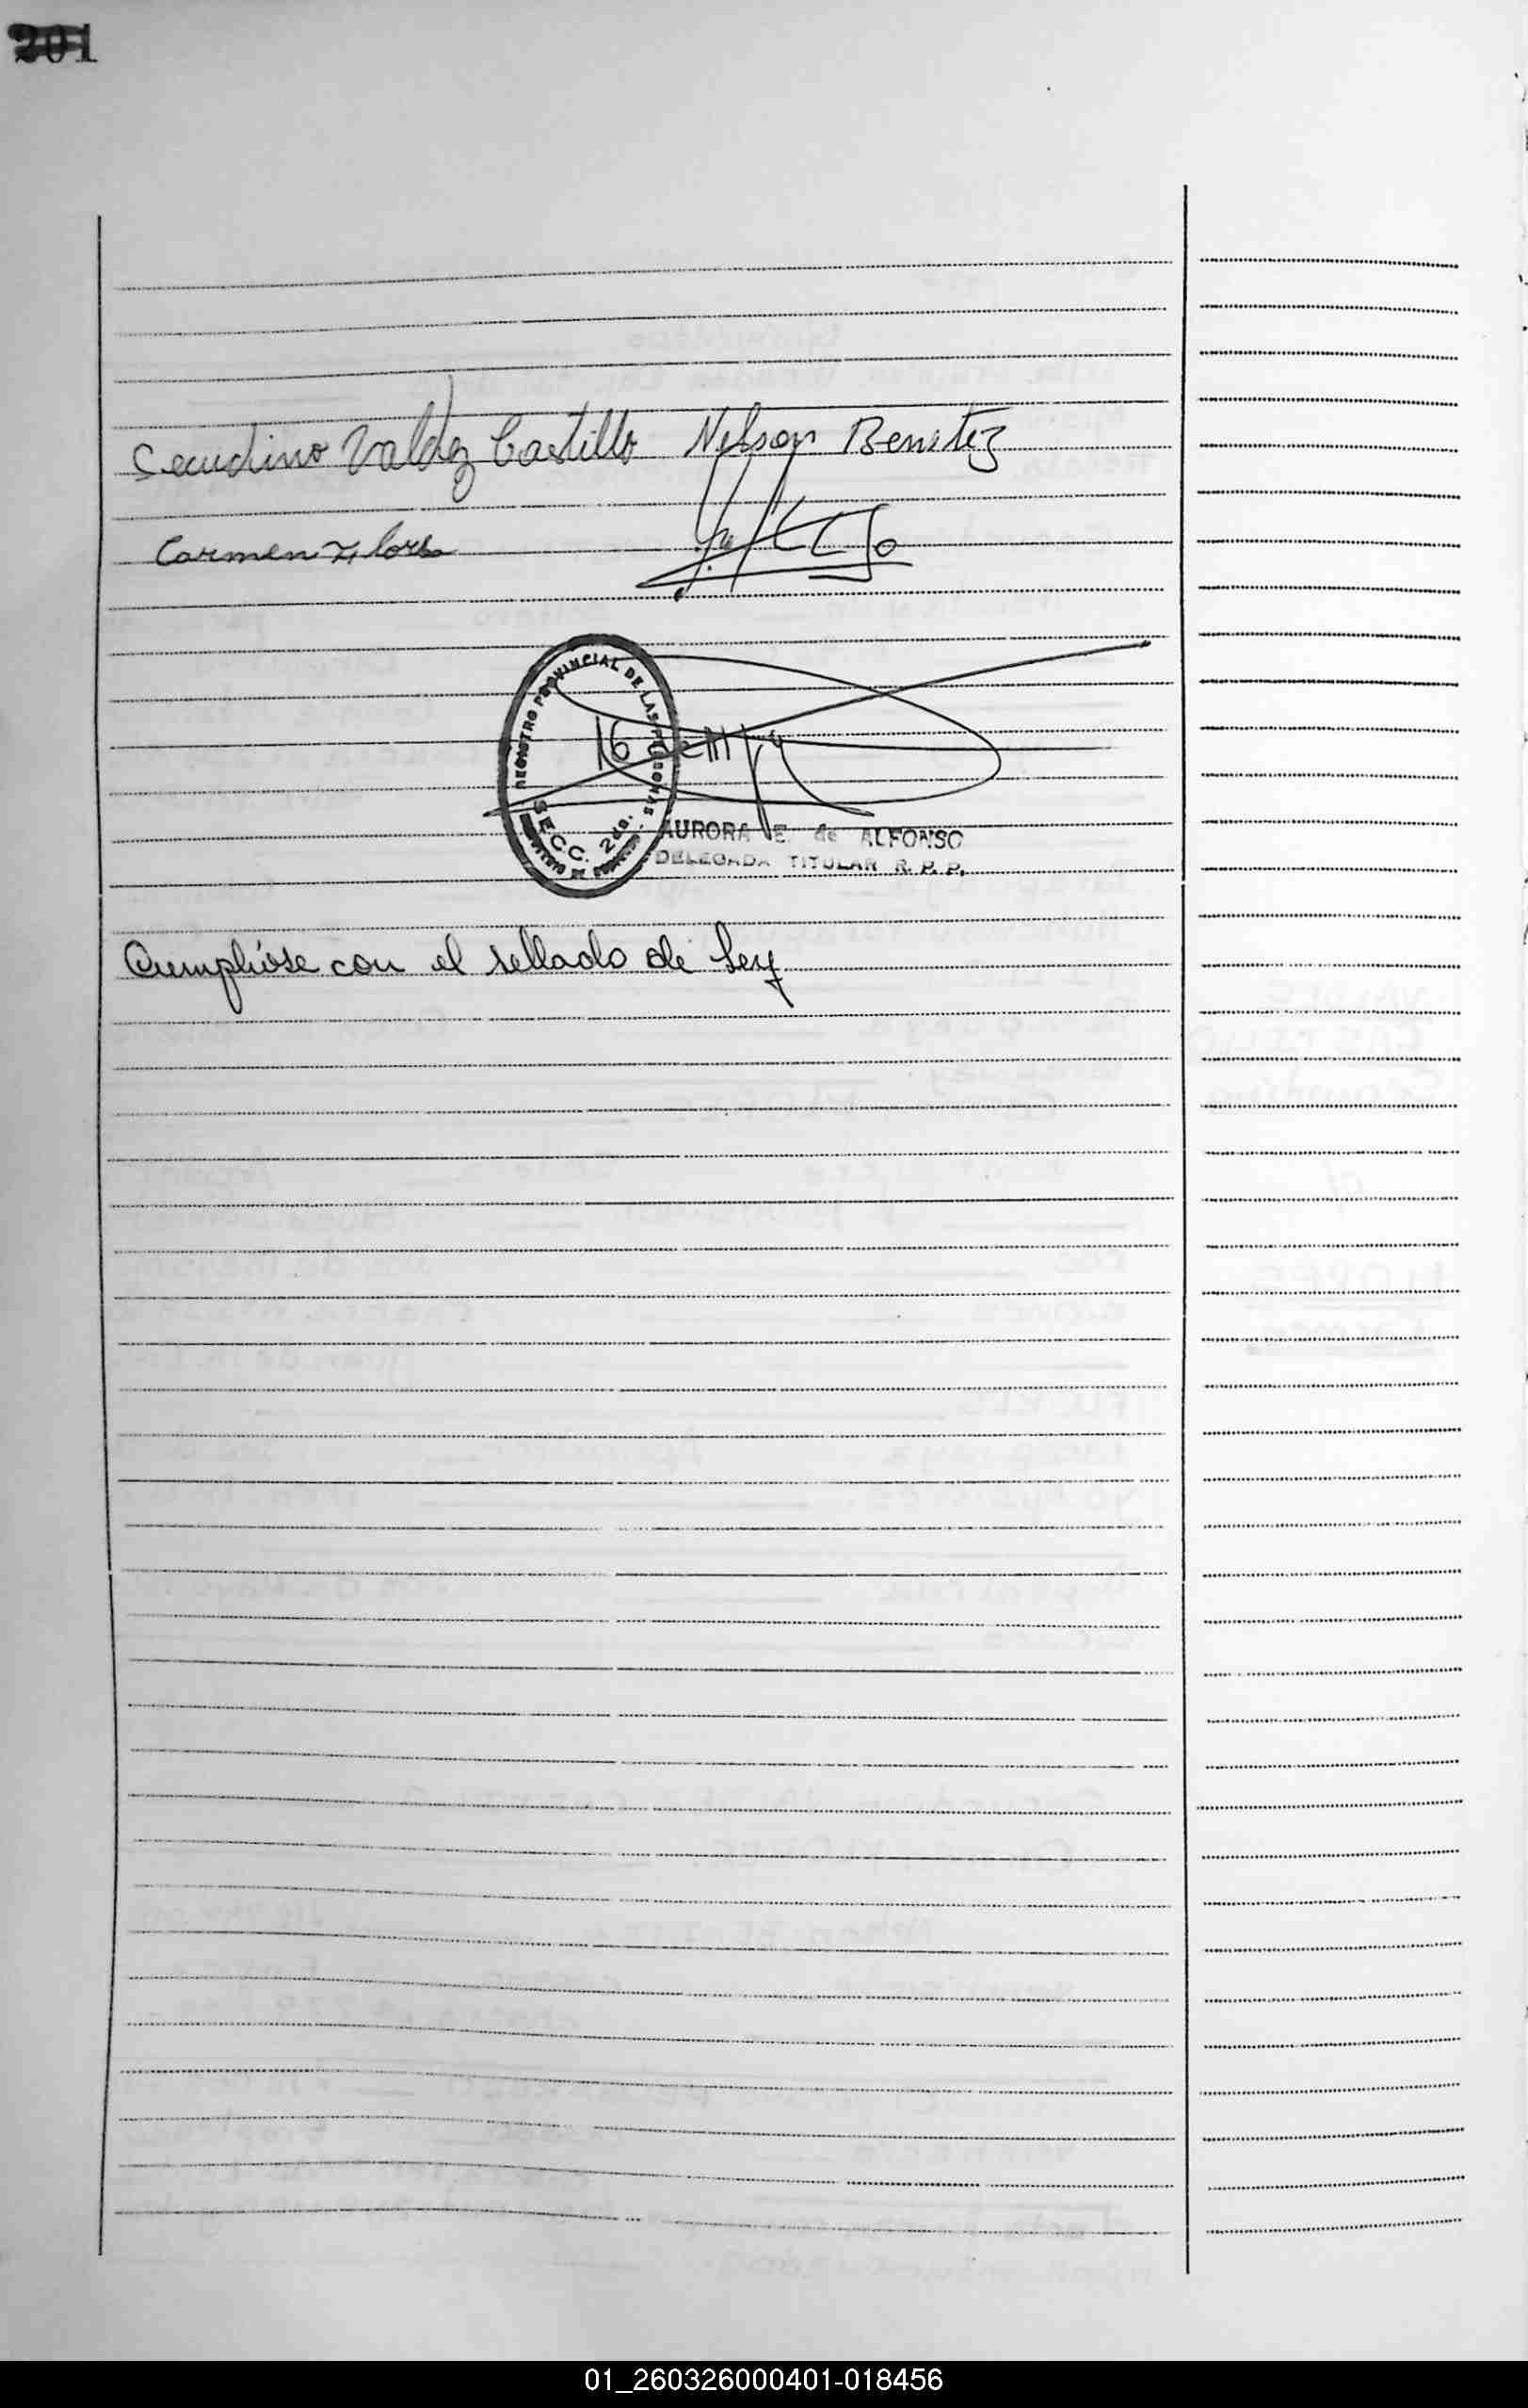 201
Secudino Valdez Castillo Nelson Benitez
Carmen Flores
REGISTRO PROVINCIAL DE LAS PERSONAS
16
SECC. 2da.
AURORA E. de ALFONSO
DELEGADA TITULAR R. P. P.
Cumplióse con el sellado de Ley
01_260326000401-018456